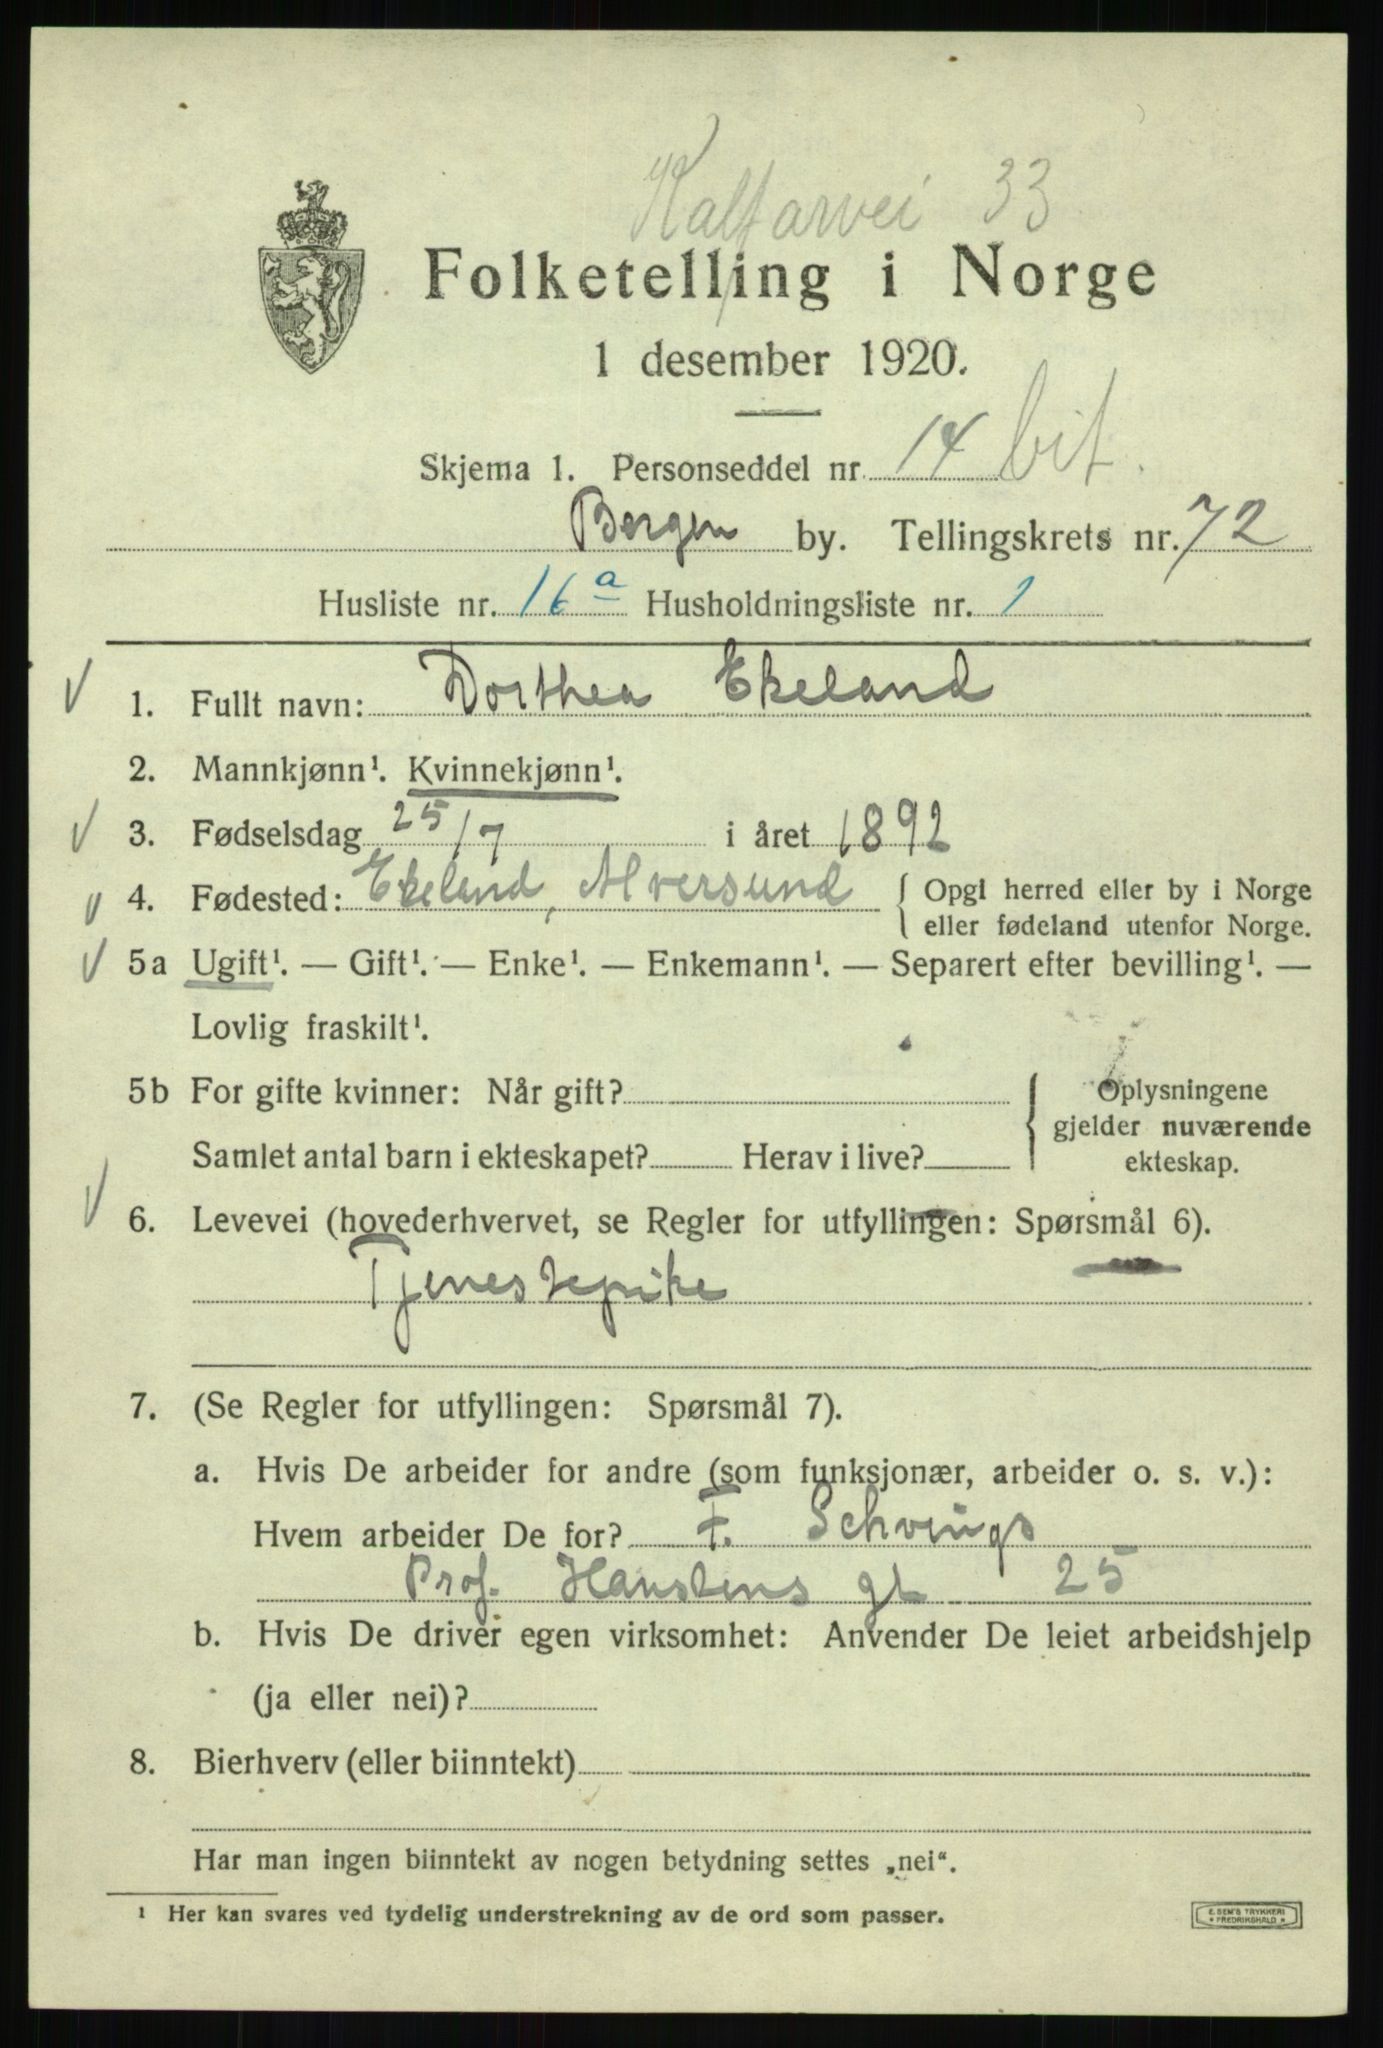 Kalfarvei 33
Folketelling i Norge
1 desember 1920.
Skjema 1. Personseddel nr. 14 bit.
Bergen by. Tellingskrets nr. 72
Husliste nr. 16a Husholdningsliste nr. 1
1. Fullt navn: Dorthea Ekeland
2. Mannkjønn¹. Kvinnekjønn¹.
3. Fødselsdag 25/7 i året 1892
4. Fødested: Ekeland, Alversund { Opgi herred eller by i Norge
eller fødeland utenfor Norge.
5a Ugift¹. — Gift¹. — Enke¹. — Enkemann¹. — Separert efter bevilling¹. —
Lovlig fraskilt¹.
5b For gifte kvinner: Når gift? { Oplysningene
gjelder nuværende
Samlet antal barn i ekteskapet? Herav i live? ekteskap.
6. Levevei (hovederhvervet, se Regler for utfyllingen: Spørsmål 6).
Tjenestepike
7. (Se Regler for utfyllingen: Spørsmål 7).
a. Hvis De arbeider for andre (som funksjonær, arbeider o. s. v.):
Hvem arbeider De for? F. Schvings
Prof. Hanstens gt 25
b. Hvis De driver egen virksomhet: Anvender De leiet arbeidshjelp
(ja eller nei)?
8. Bierhverv (eller biinntekt)
Har man ingen biinntekt av nogen betydning settes „nei“.
¹ Her kan svares ved tydelig understrekning av de ord som passer.
E. SEM'S TRYKKERI
* FREDRIKSHALD *